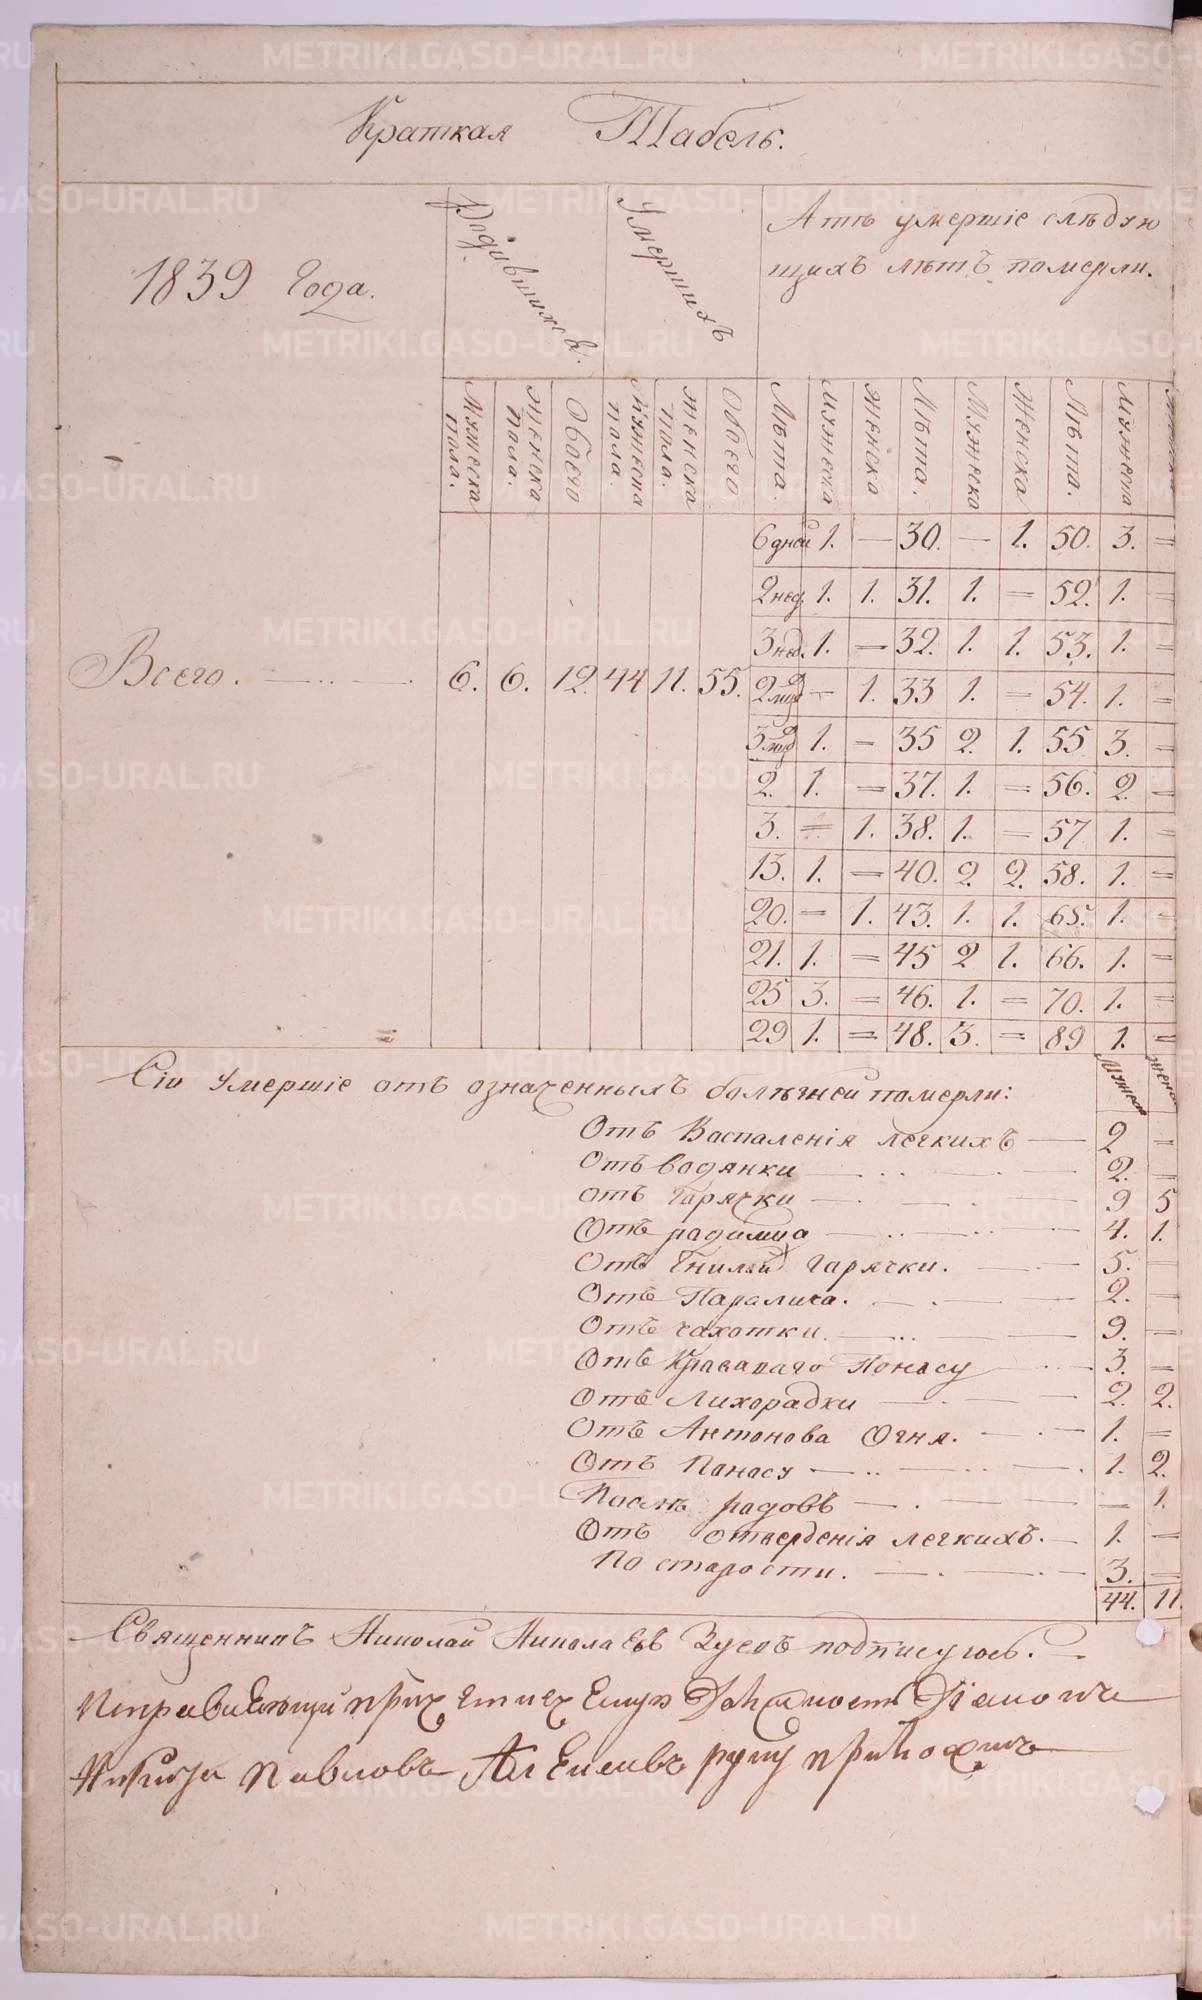 Краткая Табель.
1839 Года.
Родившихся.
Умершихъ
Атъ умершіе слѣдую
щихъ лѣтъ померли.
Мужеска пола.
Женска пола.
Обоего
Мужеска пола.
Женска пола.
Обоего
Лѣта.
Мужеска
Женска
Лѣта.
Мужеска
Женска
Лѣта.
Мужеска
6 дней 1. — 30. — 1. 50. 3. =
2 нед. 1. 1. 31. 1. = 52. 1. =
3 нед. 1. = 32. 1. 1. 53. 1. =
Всего. 6. 6. 12. 44 11. 55.
2 мцд — 1. 33 1. = 54. 1. =
3 мцд 1. = 35 2. 1. 55 3. =
2. 1. = 37. 1. = 56. 2. =
3. = 1. 38. 1. = 57 1. =
13. 1. = 40. 2. 2. 58. 1. =
20. = 1. 43. 1. 1. 65. 1. =
21. 1. = 45 2 1. 66. 1. =
25 3. = 46. 1. = 70. 1. =
29 1. = 48. 3. = 89 1. =
Сіи Умершіе отъ означенныхъ болѣзней померли:
Отъ Воспаленія легкихъ — 2 =
Отъ водянки — 2. —
отъ Гарячки — 9 5
Отъ родимца — 4. 1.
Отъ Гнилай гарячки. — 5. —
Отъ Паралича. — 2. —
Отъ чахотки. — 9. —
Отъ Кравапаго Поносу — 3. —
Отъ Лихорадки — 2. 2.
Отъ Антонова Огня. — 1. —
Отъ Поносу — 1. 2.
Послѣ радовъ — — 1.
Отъ отверденія легкихъ. — 1. —
По старости. — 3. —
44. 11.
Священникъ Николай Николаевъ подписуюсь.
Никита Павловъ руку приложилъ
METRIKI.GASO-URAL.RU